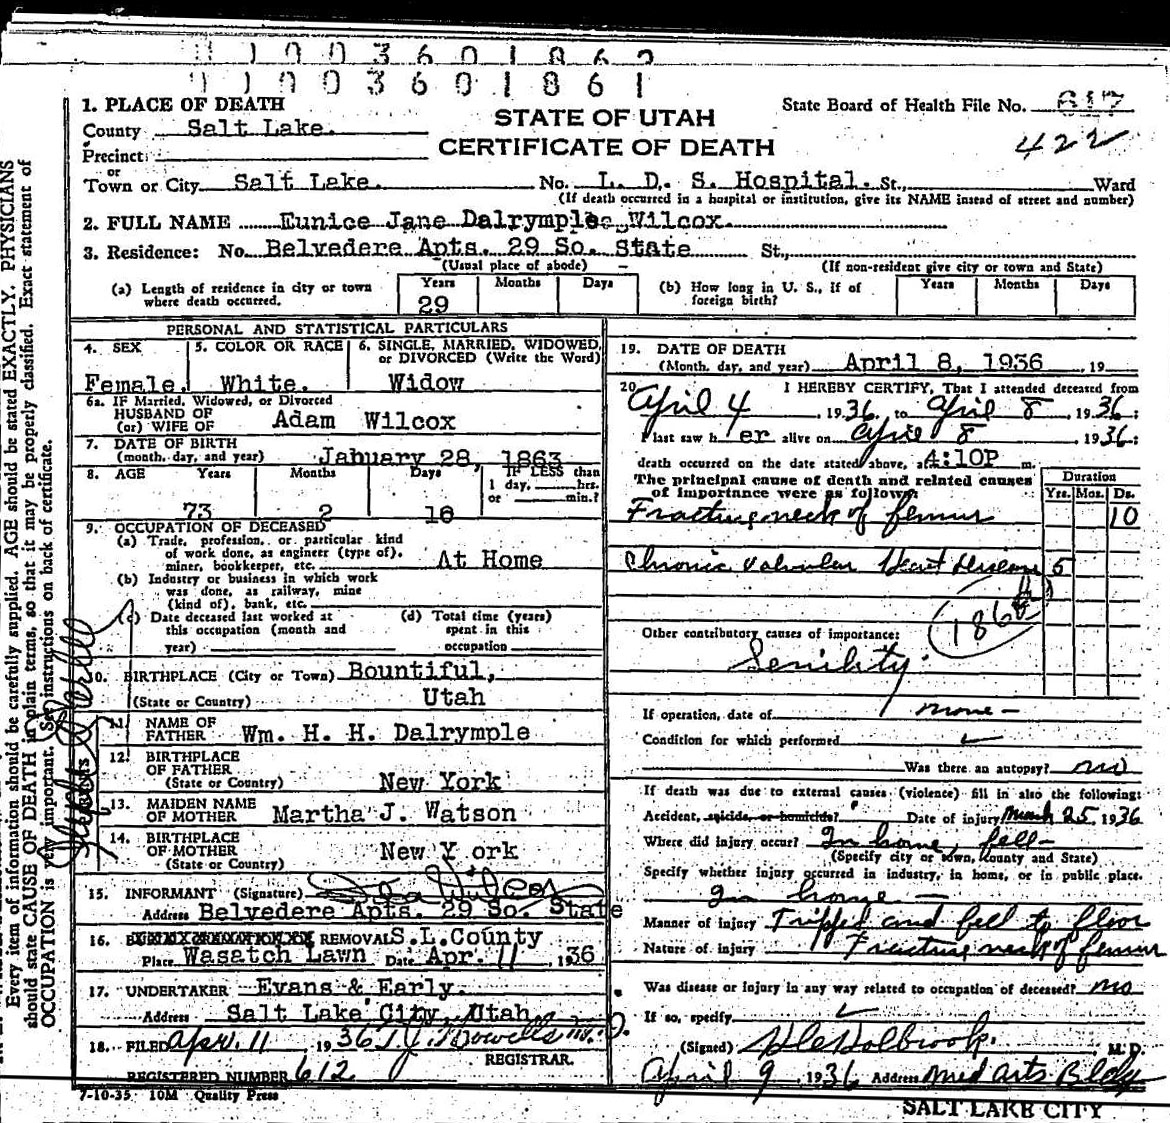 1003601862
1003601861
1. PLACE OF DEATH
County Salt Lake.
Precinct
or
Town or City Salt Lake.
STATE OF UTAH
CERTIFICATE OF DEATH
State Board of Health File No. 617
422
No. L. D. S. Hospital. St., Ward
(If death occurred in a hospital or institution, give its NAME instead of street and number)
2. FULL NAME Eunice Jane Dalrymple Wilcox.
3. Residence: No. Belvedere Apts. 29 So. State St.,
(Usual place of abode) (If non-resident give city or town and State)
(a) Length of residence in city or town where death occurred. Years 29 Months Days
(b) How long in U. S., if of foreign birth? Years Months Days
PERSONAL AND STATISTICAL PARTICULARS
4. SEX Female.
5. COLOR OR RACE White.
6. SINGLE, MARRIED, WIDOWED, or DIVORCED (Write the Word) Widow
6a. IF Married, Widowed, or Divorced
HUSBAND OF
(or) WIFE OF Adam Wilcox
7. DATE OF BIRTH
(month, day, and year) January 28, 1863
8. AGE Years Months Days IF LESS than
1 day, hrs.
or min.?
73 2 10
9. OCCUPATION OF DECEASED
(a) Trade, profession, or particular kind
of work done, as engineer (type of),
miner, bookkeeper, etc. At Home
(b) Industry or business in which work
was done, as railway, mine
(kind of), bank, etc.
(c) Date deceased last worked at
this occupation (month and
year)
(d) Total time (years)
spent in this
occupation
10. BIRTHPLACE (City or Town) Bountiful,
(State or Country) Utah
11. NAME OF
FATHER Wm. H. H. Dalrymple
12. BIRTHPLACE
OF FATHER
(State or Country) New York
13. MAIDEN NAME
OF MOTHER Martha J. Watson
14. BIRTHPLACE
OF MOTHER
(State or Country) New York
15. INFORMANT (Signature) Wilcox
Address Belvedere Apts. 29 So. State
16. REMOVAL S.L.County
Place Wasatch Lawn Date Apr. 11, 1936
17. UNDERTAKER Evans & Early.
Address Salt Lake City, Utah.
18. FILED Apr. 11 1936
REGISTRAR.
REGISTERED NUMBER 612
7-10-35 10M Quality Press
19. DATE OF DEATH
(Month, day, and year) April 8, 1936 19
20 I HEREBY CERTIFY, That I attended deceased from
April 4, 1936, to April 8 1936;
I last saw her alive on April 8, 1936;
death occurred on the date stated above, at 4:10P m.
The principal cause of death and related causes
of importance were as follows:
Duration
Yrs. Mos. Ds.
Fracture neck of femur 10
Chronic Valvular Heart Disease 5
186
Other contributory causes of importance:
Senility.
If operation, date of none -
Condition for which performed
Was there an autopsy? no
If death was due to external causes (violence) fill in also the following:
Accident, suicide, or homicide? Date of injury March 25, 1936
Where did injury occur? In home, fell -
(Specify city or town, County and State)
Specify whether injury occurred in industry, in home, or in public place.
In home -
Manner of injury Tripped and fell to floor
Nature of injury Fracture neck of femur
Was disease or injury in any way related to occupation of deceased? no
If so, specify
(Signed) Holbrook. M.D.
April 9, 1936 Address Med Arts Bldg
SALT LAKE CITY
Every item of information should be carefully supplied. AGE should be stated EXACTLY. PHYSICIANS
should state CAUSE OF DEATH in plain terms, so that it may be properly classified. Exact statement of
OCCUPATION is very important. See instructions on back of certificate.